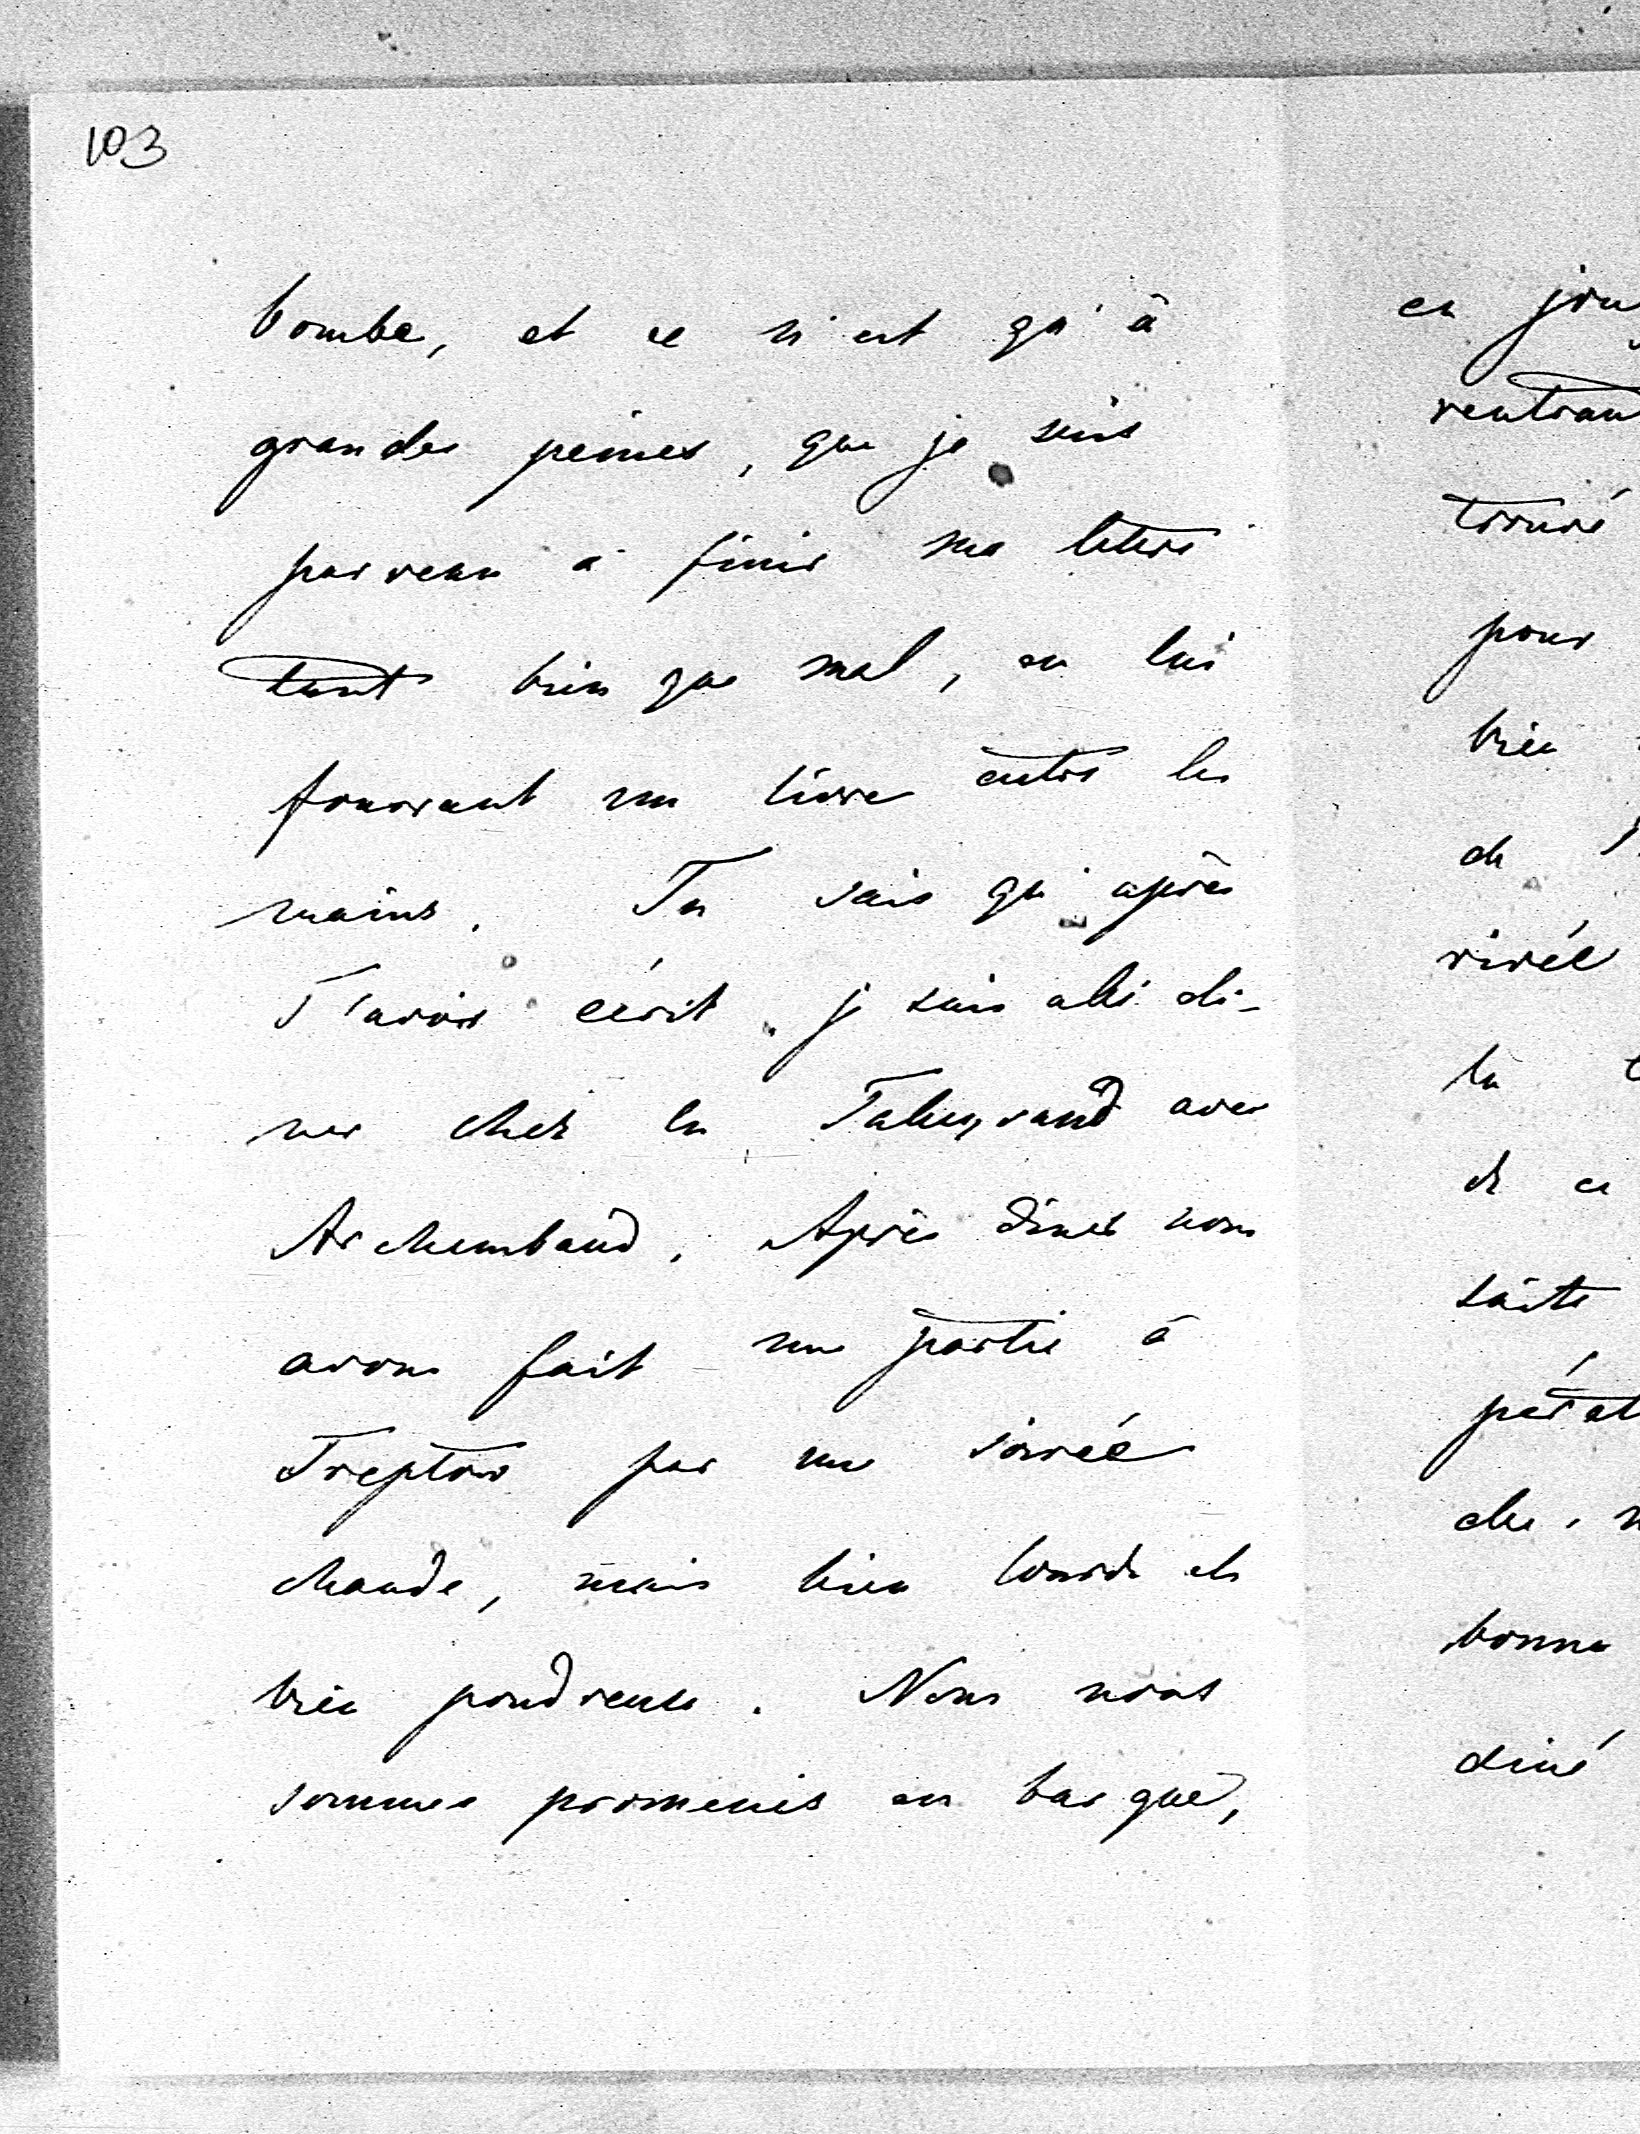 103
bombe, et ce n'est qu'à
grandes peines, que je suis
parvenu à finir ma lettre
tant bien que mal, en lui
fourrant un livre entre les
mains. Tu sais qu'après
T'avoir écrit, je suis allé dî-
ner chez les Talleyrand avec
Archembaud. Après dîner nous
avons fait une partie à
Treptow par une soirée
chaude, mais bien lourde et
bien poudreuse. Nous nous
sommes promenés en barque,
en
rentrant
trouvé
pour
bien
de
rivée
la
de ce
suite
che,
bonne
diné